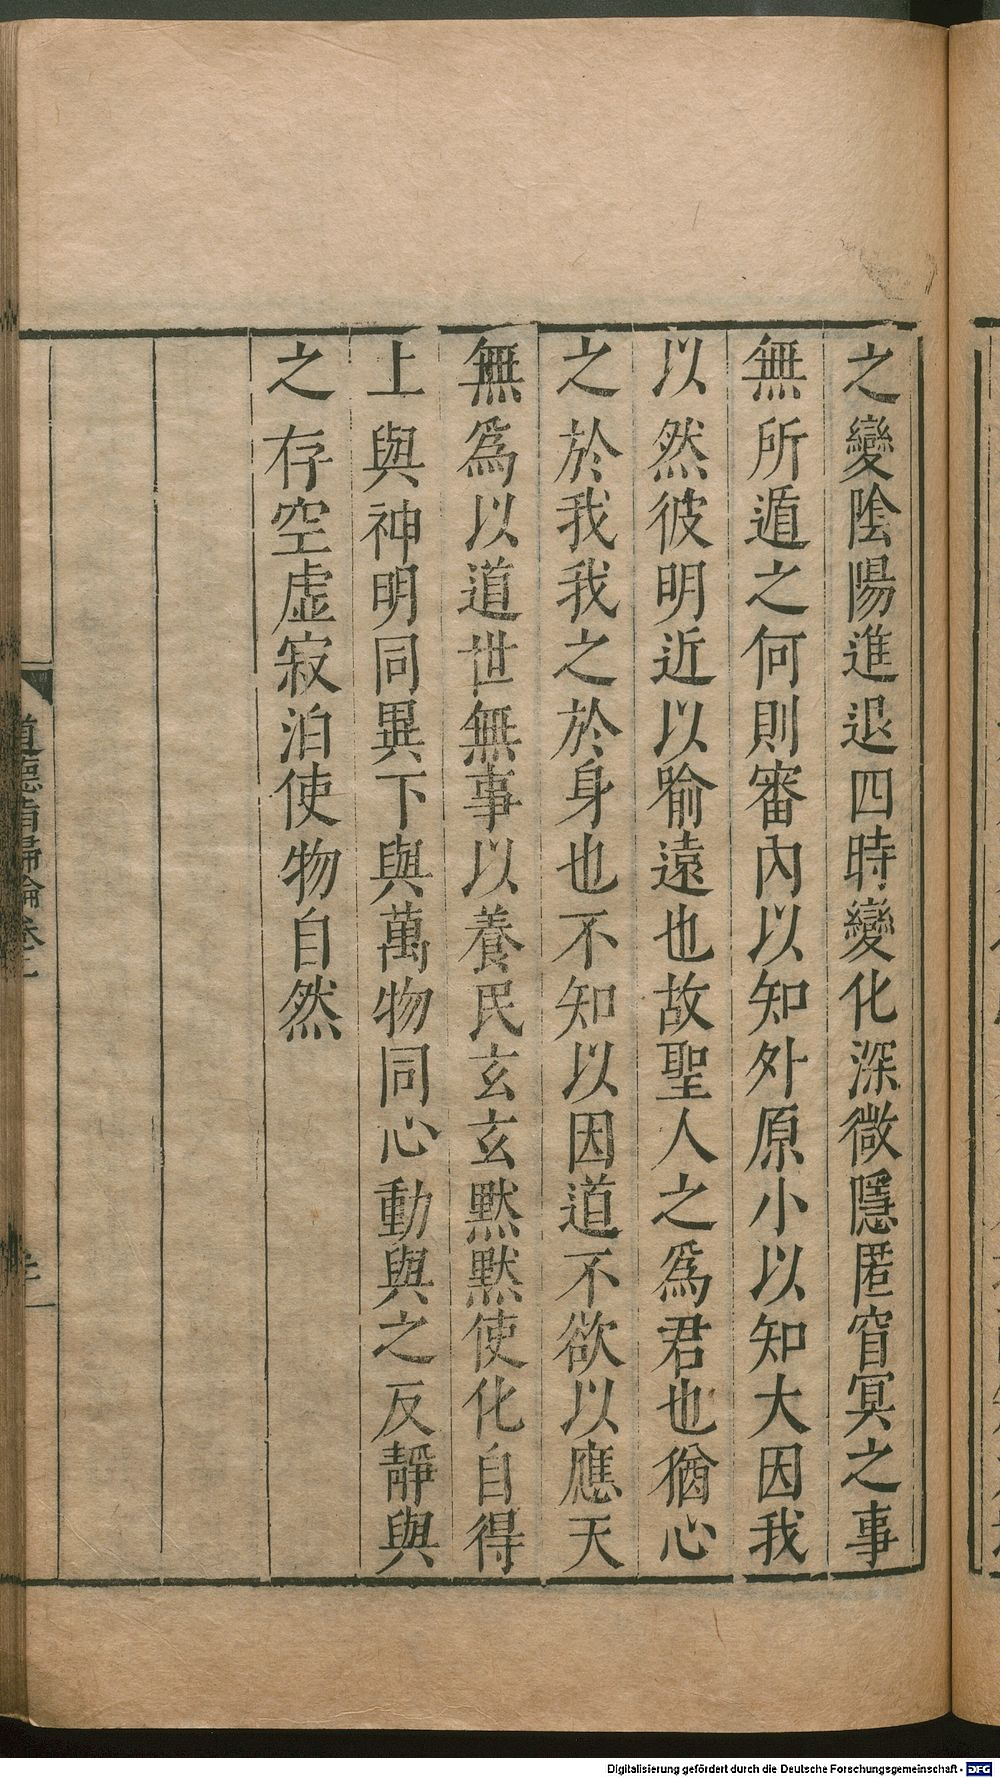 之變陰陽進退四時變化深微隱匿窅冥之事
無所遁之何則審內以知外原小以知大因我
以然彼明近以喻遠也故聖人之爲君也猶心
之於我我之於身也不知以因道不欲以應天
無爲以道世無事以養民玄玄默默使化自得
上與神明同異下與萬物同心動與之反靜與
之存空虛寂泊使物自然
道德指歸論卷二
Digitalisierung gefördert durch die Deutsche Forschungsgemeinschaft - DFG